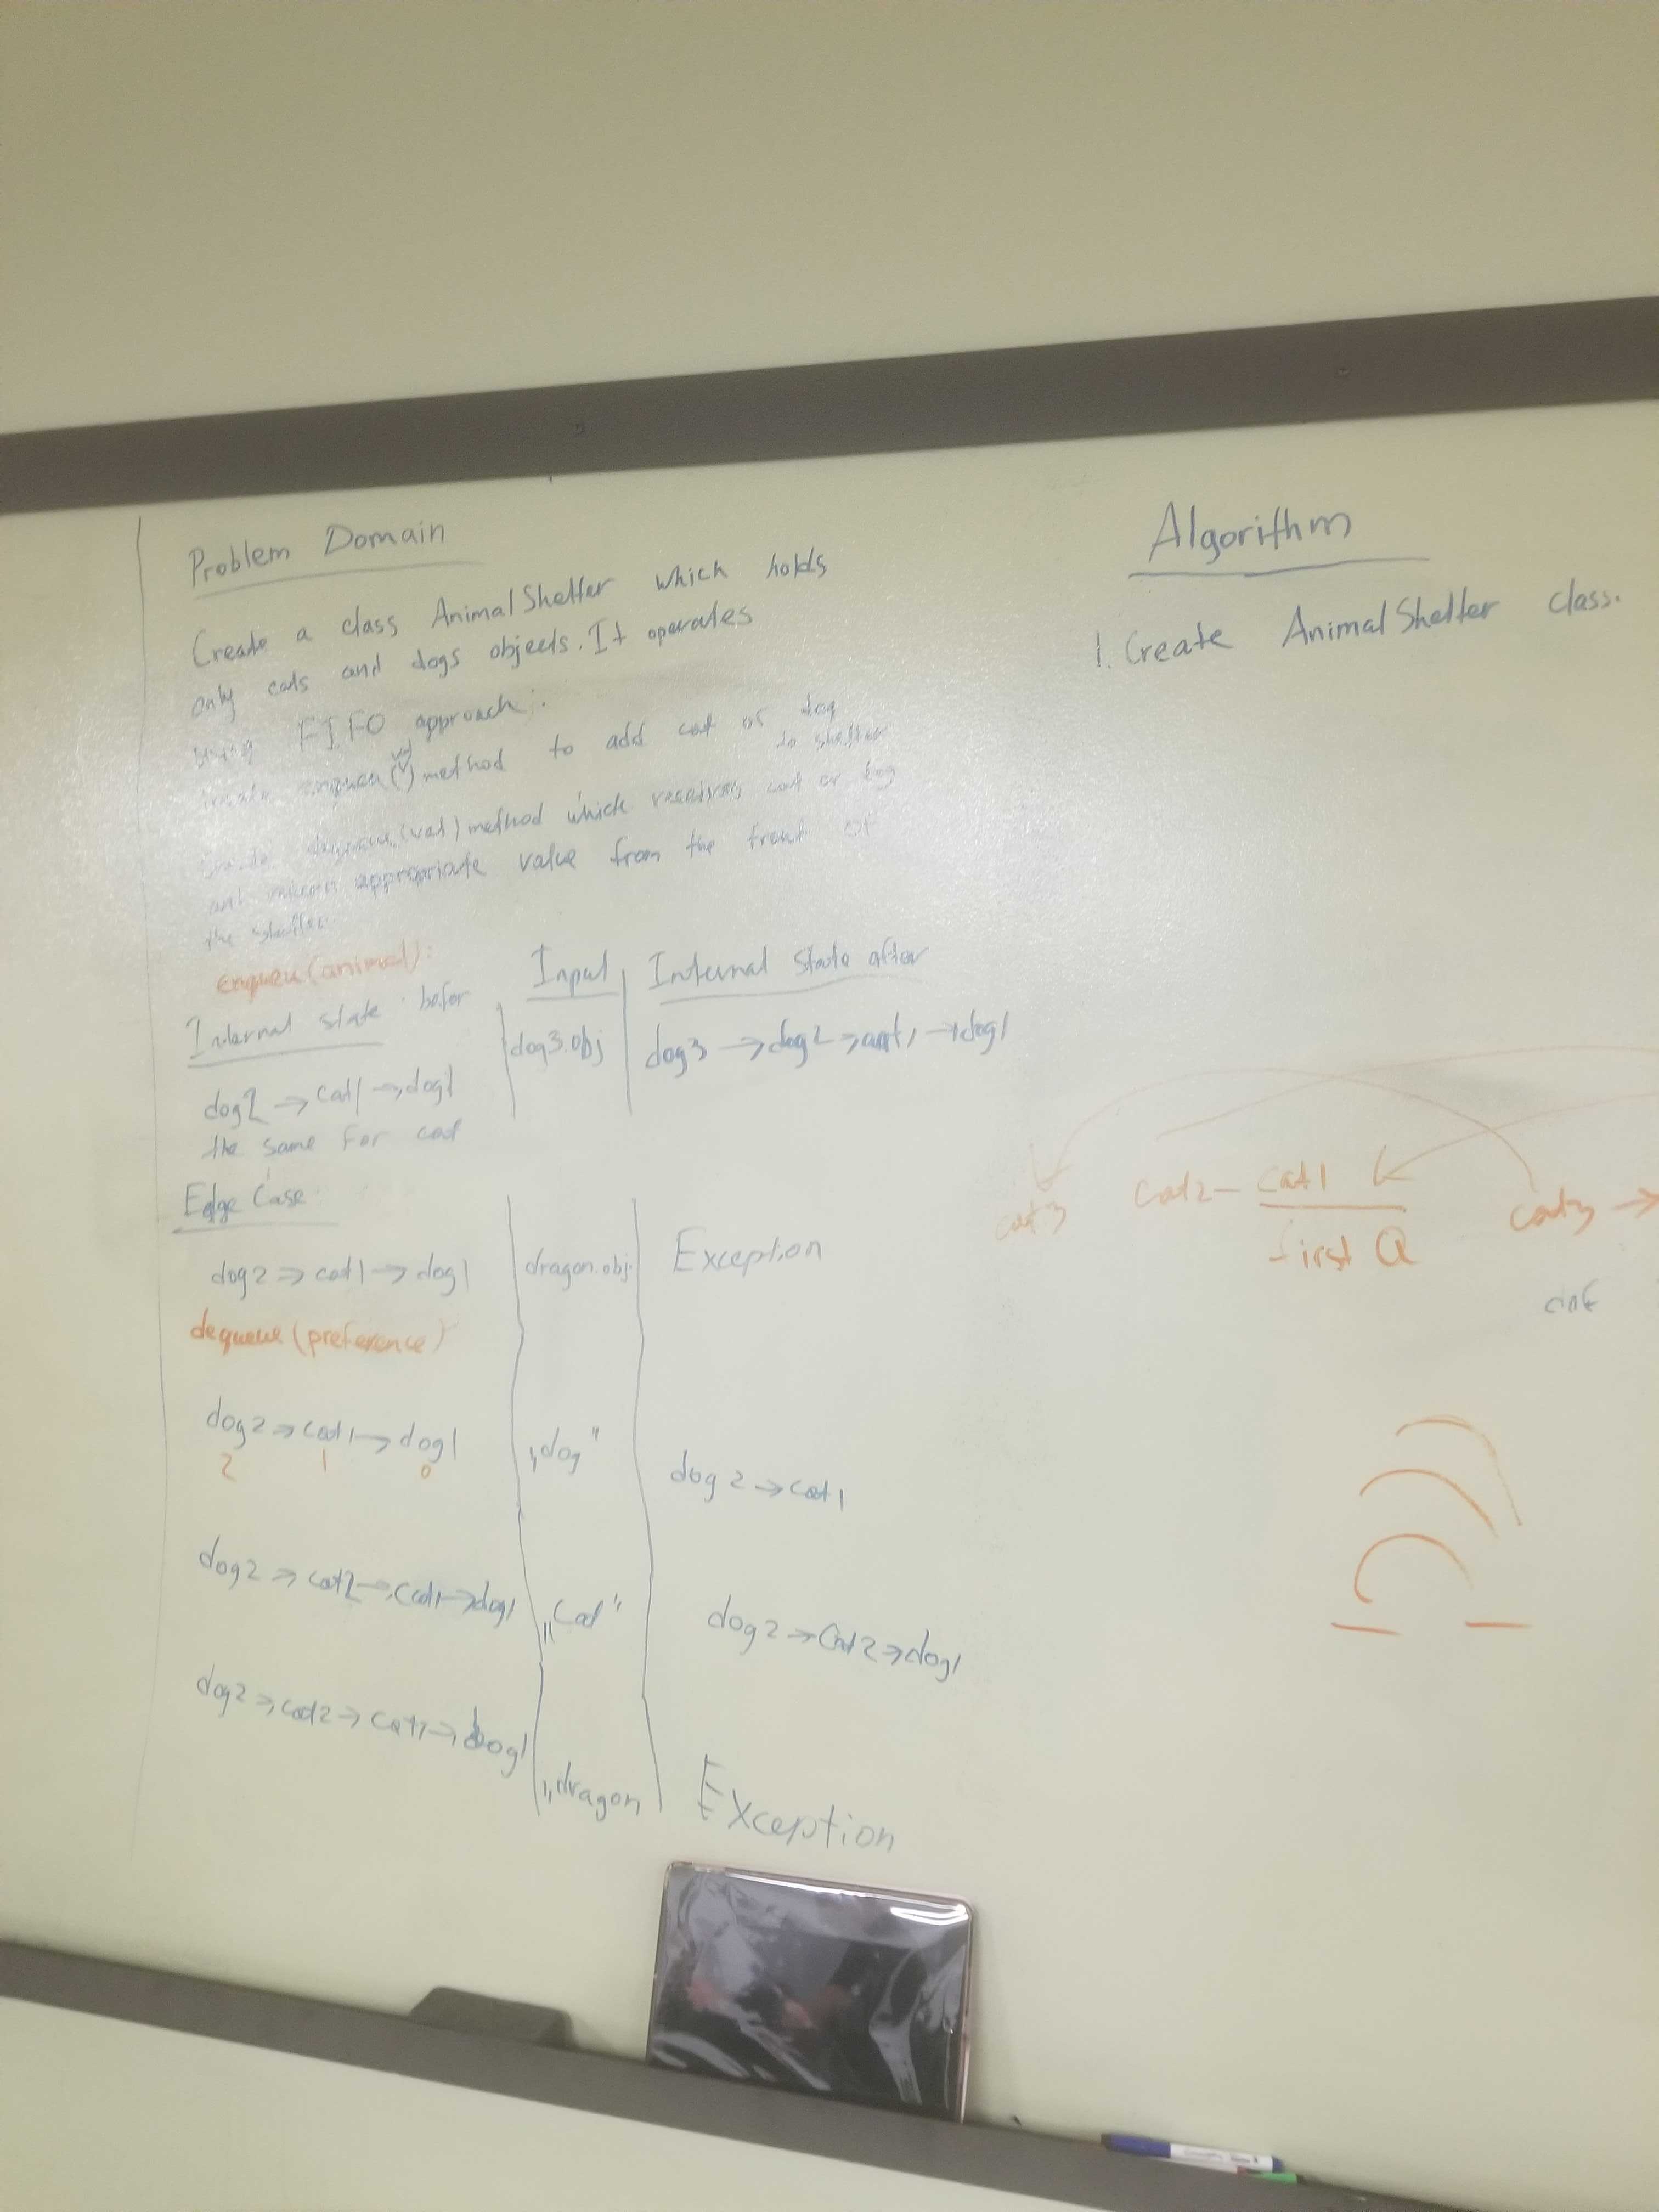 Problem Domain
Create a class AnimalShelter which holds
only cats and dogs objects. It operates
using FIFO approach.
enqueu(val) method to add cat or dog
to shelter
(val) method which receives cat or dog
appropriate value from the front of
the shelter
enqueu(animal):
Internal state befor | Input | Internal State after
dog2 → cat1 → dog1 | dog3.obj | dog3 → dog2 → cat1 → dog1
the same for cat
Edge Case
dog2 → cat1 → dog1 | dragon.obj | Exception
dequeue(preference)
dog2 → cat1 → dog1 | „dog" | dog2 → cat1
2 1 0
dog2 → cat2 → cat1 → dog1 | „cat" | dog2 → Cat2 → dog1
dog2 → cat2 → cat1 → dog1 | „dragon | Exception
Algorithm
1. Create AnimalShelter class.
cat3 cat2 - cat1 cat3 →
first Q